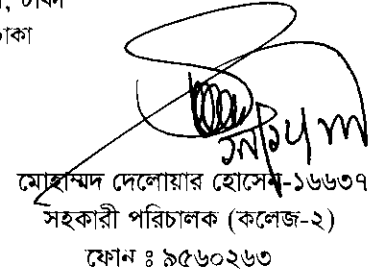 , ঢাকা
ঢাকা
মোহাম্মদ দেলোয়ার হোসেন-১৬৬৩৭
সহকারী পরিচালক (কলেজ-২)
ফোন ঃ ৯৫৬০২৬৩